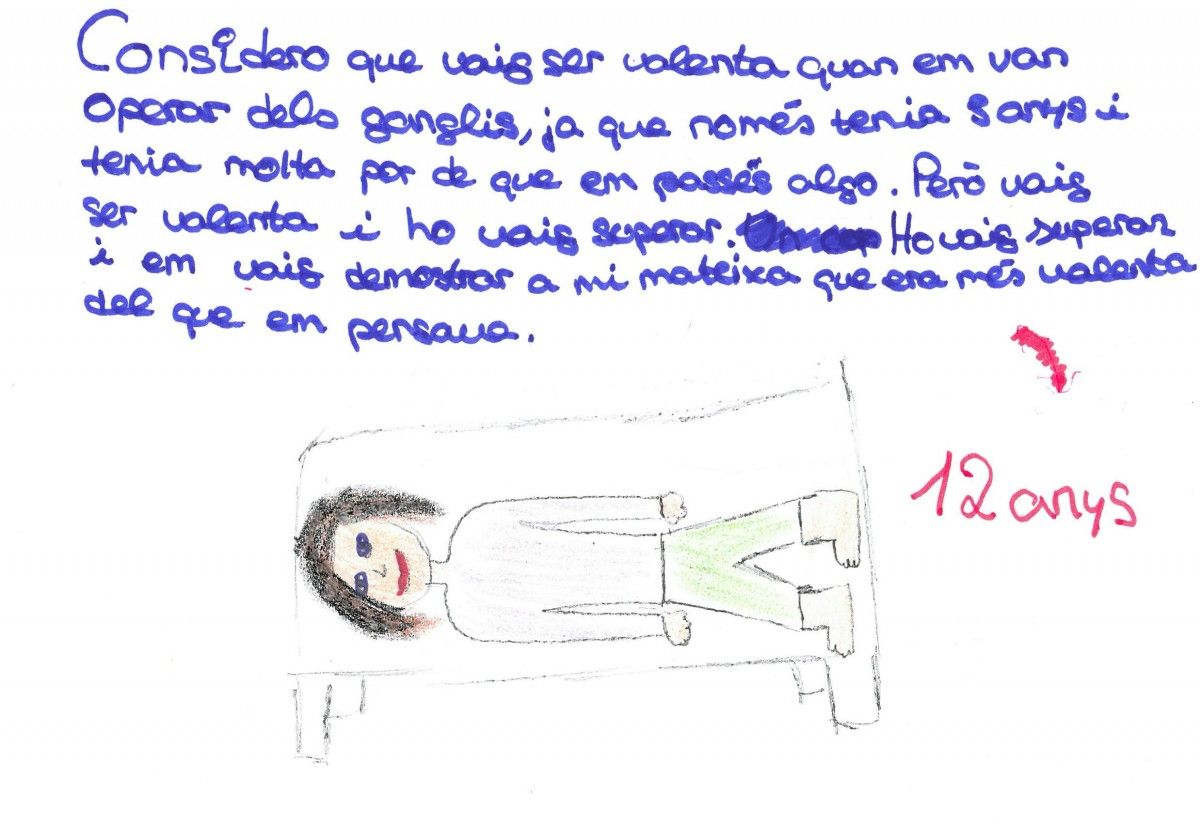 Considero que vaig ser valenta quan em van
operar dels ganglis, ja que només tenia 5 anys i
tenia molta por de que em passés algo. Però vaig
ser valenta i ho vaig superar. Ho vaig superar
i em vaig demostrar a mi mateixa que era més valenta
del que em pensava.
12 anys